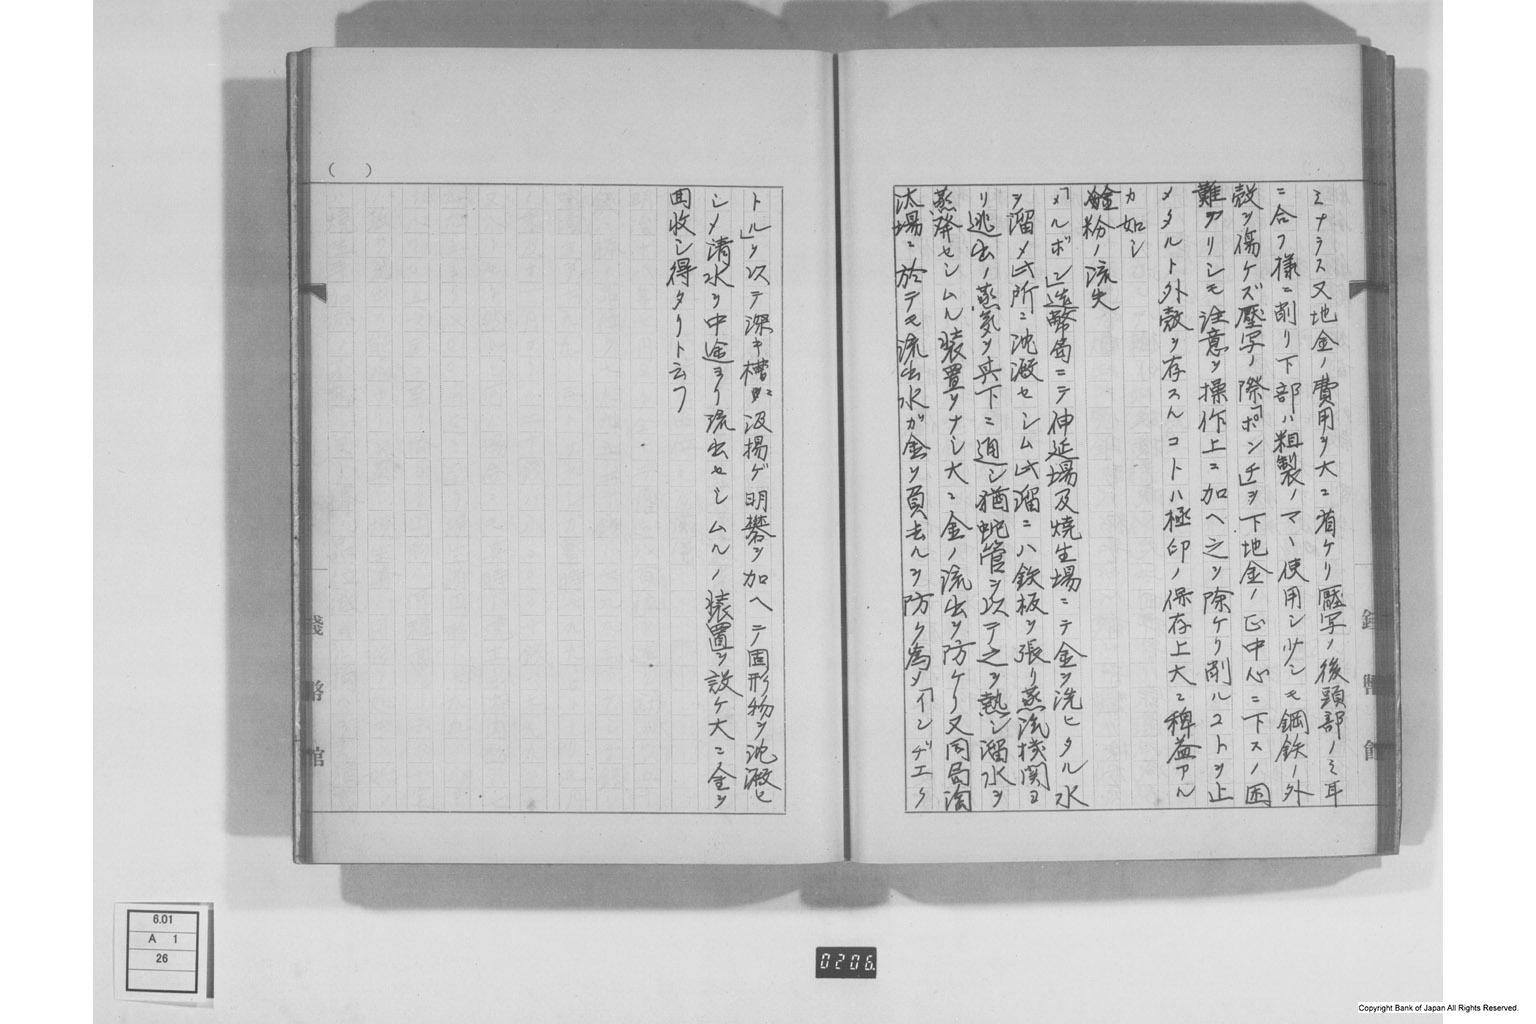 ミナラス又地金ノ費用ヲ大ニ省ケリ壓写ノ後頭部ノミ耳
ニ合フ様ニ削リ下部ハ粗製ノマヽ使用シ少シモ鋼鉄ノ外
殻ヲ傷ケズ壓写ノ際「ポンチ」ヲ下地金ノ正中心ニ下スノ困
難アリシモ注意ヲ操作上ニ加ヘ之ヲ除ケリ削ルコトヲ止
メタルト外殻ヲ存スルコトハ極印ノ保存上大ニ稗益アル
カ如シ
金粉ノ流失
「メルボン」造幣局ニテ伸延場及焼生場ニテ金ヲ洗ヒタル水
ヲ溜メ此所ニ沈澱セシム此溜ニハ鉄板ヲ張リ蒸汽機関ヨ
リ逃出ノ蒸気ヲ其下ニ通シ猶蛇管ヲ以テ之ヲ熱シ溜水ヲ
蒸発セシムル装置ヲナシ大ニ金ノ流出ヲ防ケリ又同局淘
汰場ニ於テモ流出水ガ金ヲ負去ルヲ防ク為メ「インヂエク
トル」ヲ以テ深キ槽ニ汲揚ゲ明礬ヲ加ヘテ固形物ヲ沈澱セ
シメ清水ヲ中途ヨリ流出セシムルノ装置ヲ設ケ大ニ金ヲ
回収シ得タリト云フ
( )
錢幣館
錢幣館
6.01
A 1
26
0206.
Copyright Bank of Japan All Rights Reserved.